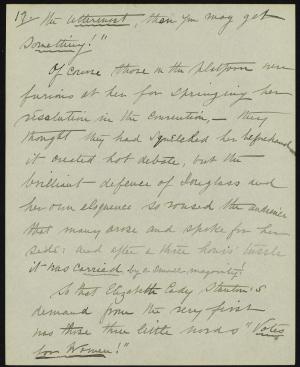 12 the uttermost, then you may get
something!"
Of course those on the platform were
furious at her for springing her
resolution in the convention, — they
thought they had squelched her beforehand
it created hot debate, but the
brilliant defense of Douglass and
her own eloquence so roused the audience
that many arose and spoke for her
side: and after a three hours' tussle
it was carried by a small majority!
So that Elizabeth Cady Stanton's
demand from the very first
was those three little words "Votes
for Women!"